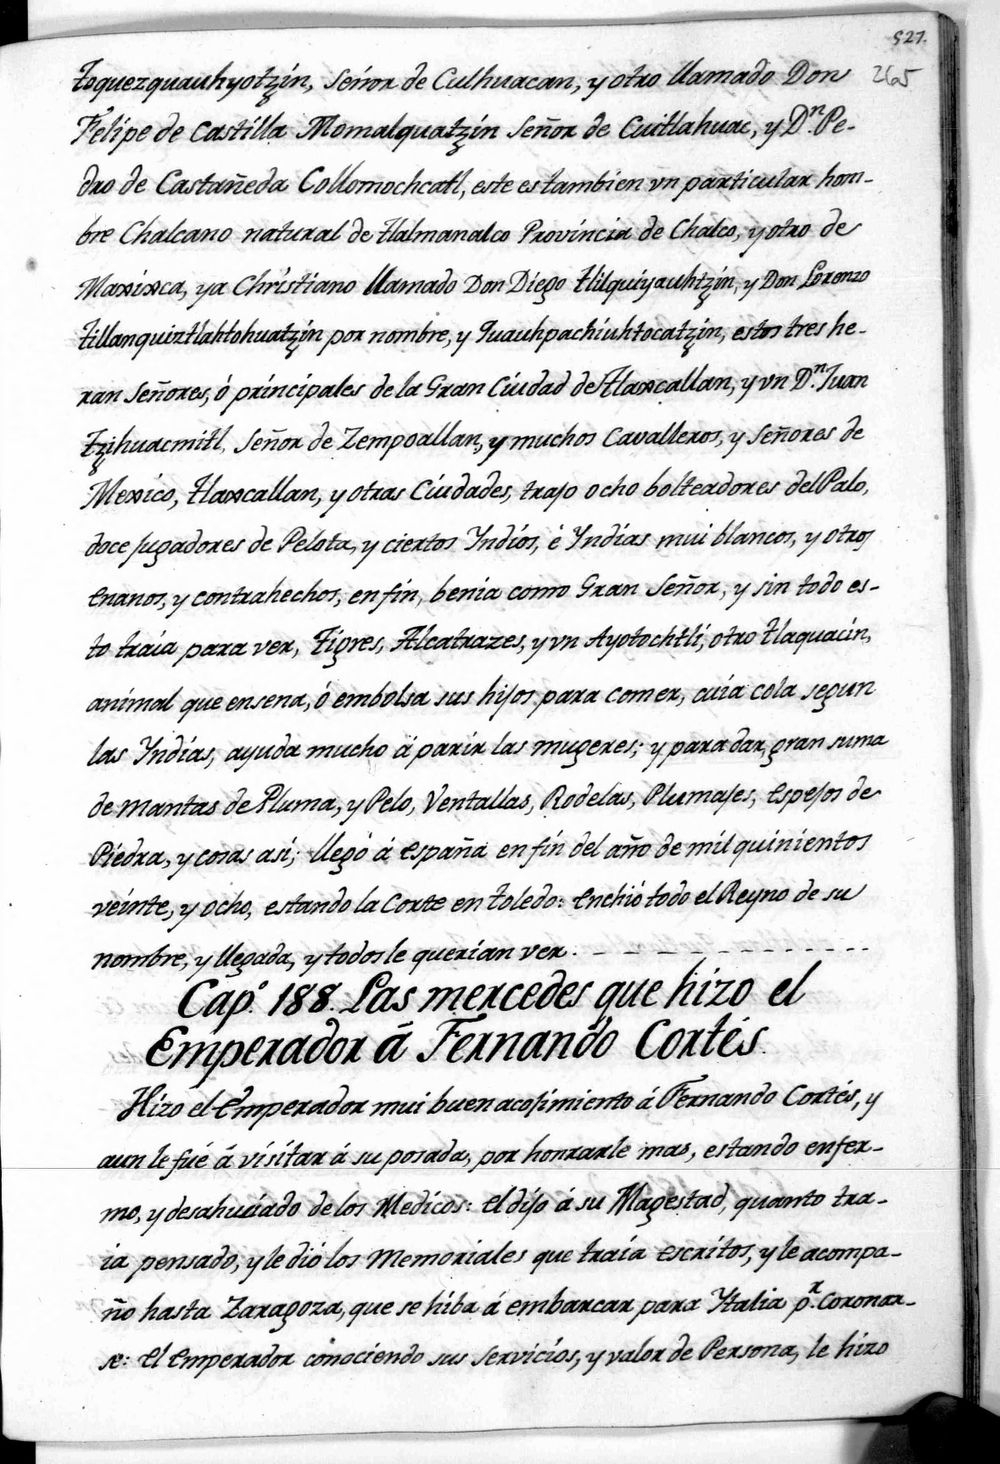 527.
265
toquezquauhyotzin, Señor de Culhuacan, y otro llamado Don
Felipe de Castilla Momalquatzin Señor de Cuitlahuac, y Dⁿ. Pe-
dro de Castañeda Collomochcatl, este es tambien vn particular hom-
bre Chalcano natural de tlalmanalco Provincia de Chalco, y otro de
Maxixca, ya Christiano llamado Don Diego tlilquiyauhtzin, y Don Lorenzo
tillanquiztlahtohuatzin por nombre, y Quauhpachiuhtocatzin, estos tres he-
ran Señores, ó principales de la Gran Ciudad de tlaxcallan, y vn Dⁿ. Juan
tzihuacmitl, Señor de Zempoallan, y muchos Cavalleros, y Señores de
Mexico, tlaxcallan, y otras Ciudades, trajo ocho bolteadores del Palo,
doce jugadores de Pelota, y ciertos Yndios, é Yndias mui blancos, y otros
enanos, y contrahechos, en fin, benia como Gran Señor, y sin todo es-
to traia para ver, Tigres, Alcatrazes, y vn Ayotochtli, otro tlaquacin,
animal que ensena, ó embolsa sus hijos para comer, cuia cola segun
las Yndias, ayuda mucho á parir las mugeres; y para dar, gran suma
de mantas de Pluma, y Pelo, Ventallas, Rodelas, Plumajes, espejos de
Piedra, y cosas asi; llegó á españa en fin del año de mil quinientos
veinte, y ocho, estando la Corte en toledo: enchió todo el Reyno de su
nombre, y llegada, y todos le querian ver.
Capº. 188. Las mercedes que hizo el
Emperador á Fernando Cortés.
Hizo el Emperador mui buen acojimiento á Fernando Cortés, y
aun le fué á visitar á su posada, por honrarle mas, estando enfer-
mo, y desahuciado de los Medicos: el dijo á su Magestad, quanto tra-
ia pensado, y le dió los Memoriales que traia escritos, y le acompa-
ño hasta Zaragoza, que se hiba á embarcar para Ytalia pʳ. coronar-
se: el Emperador conociendo sus servicios, y valor de Persona, le hizo